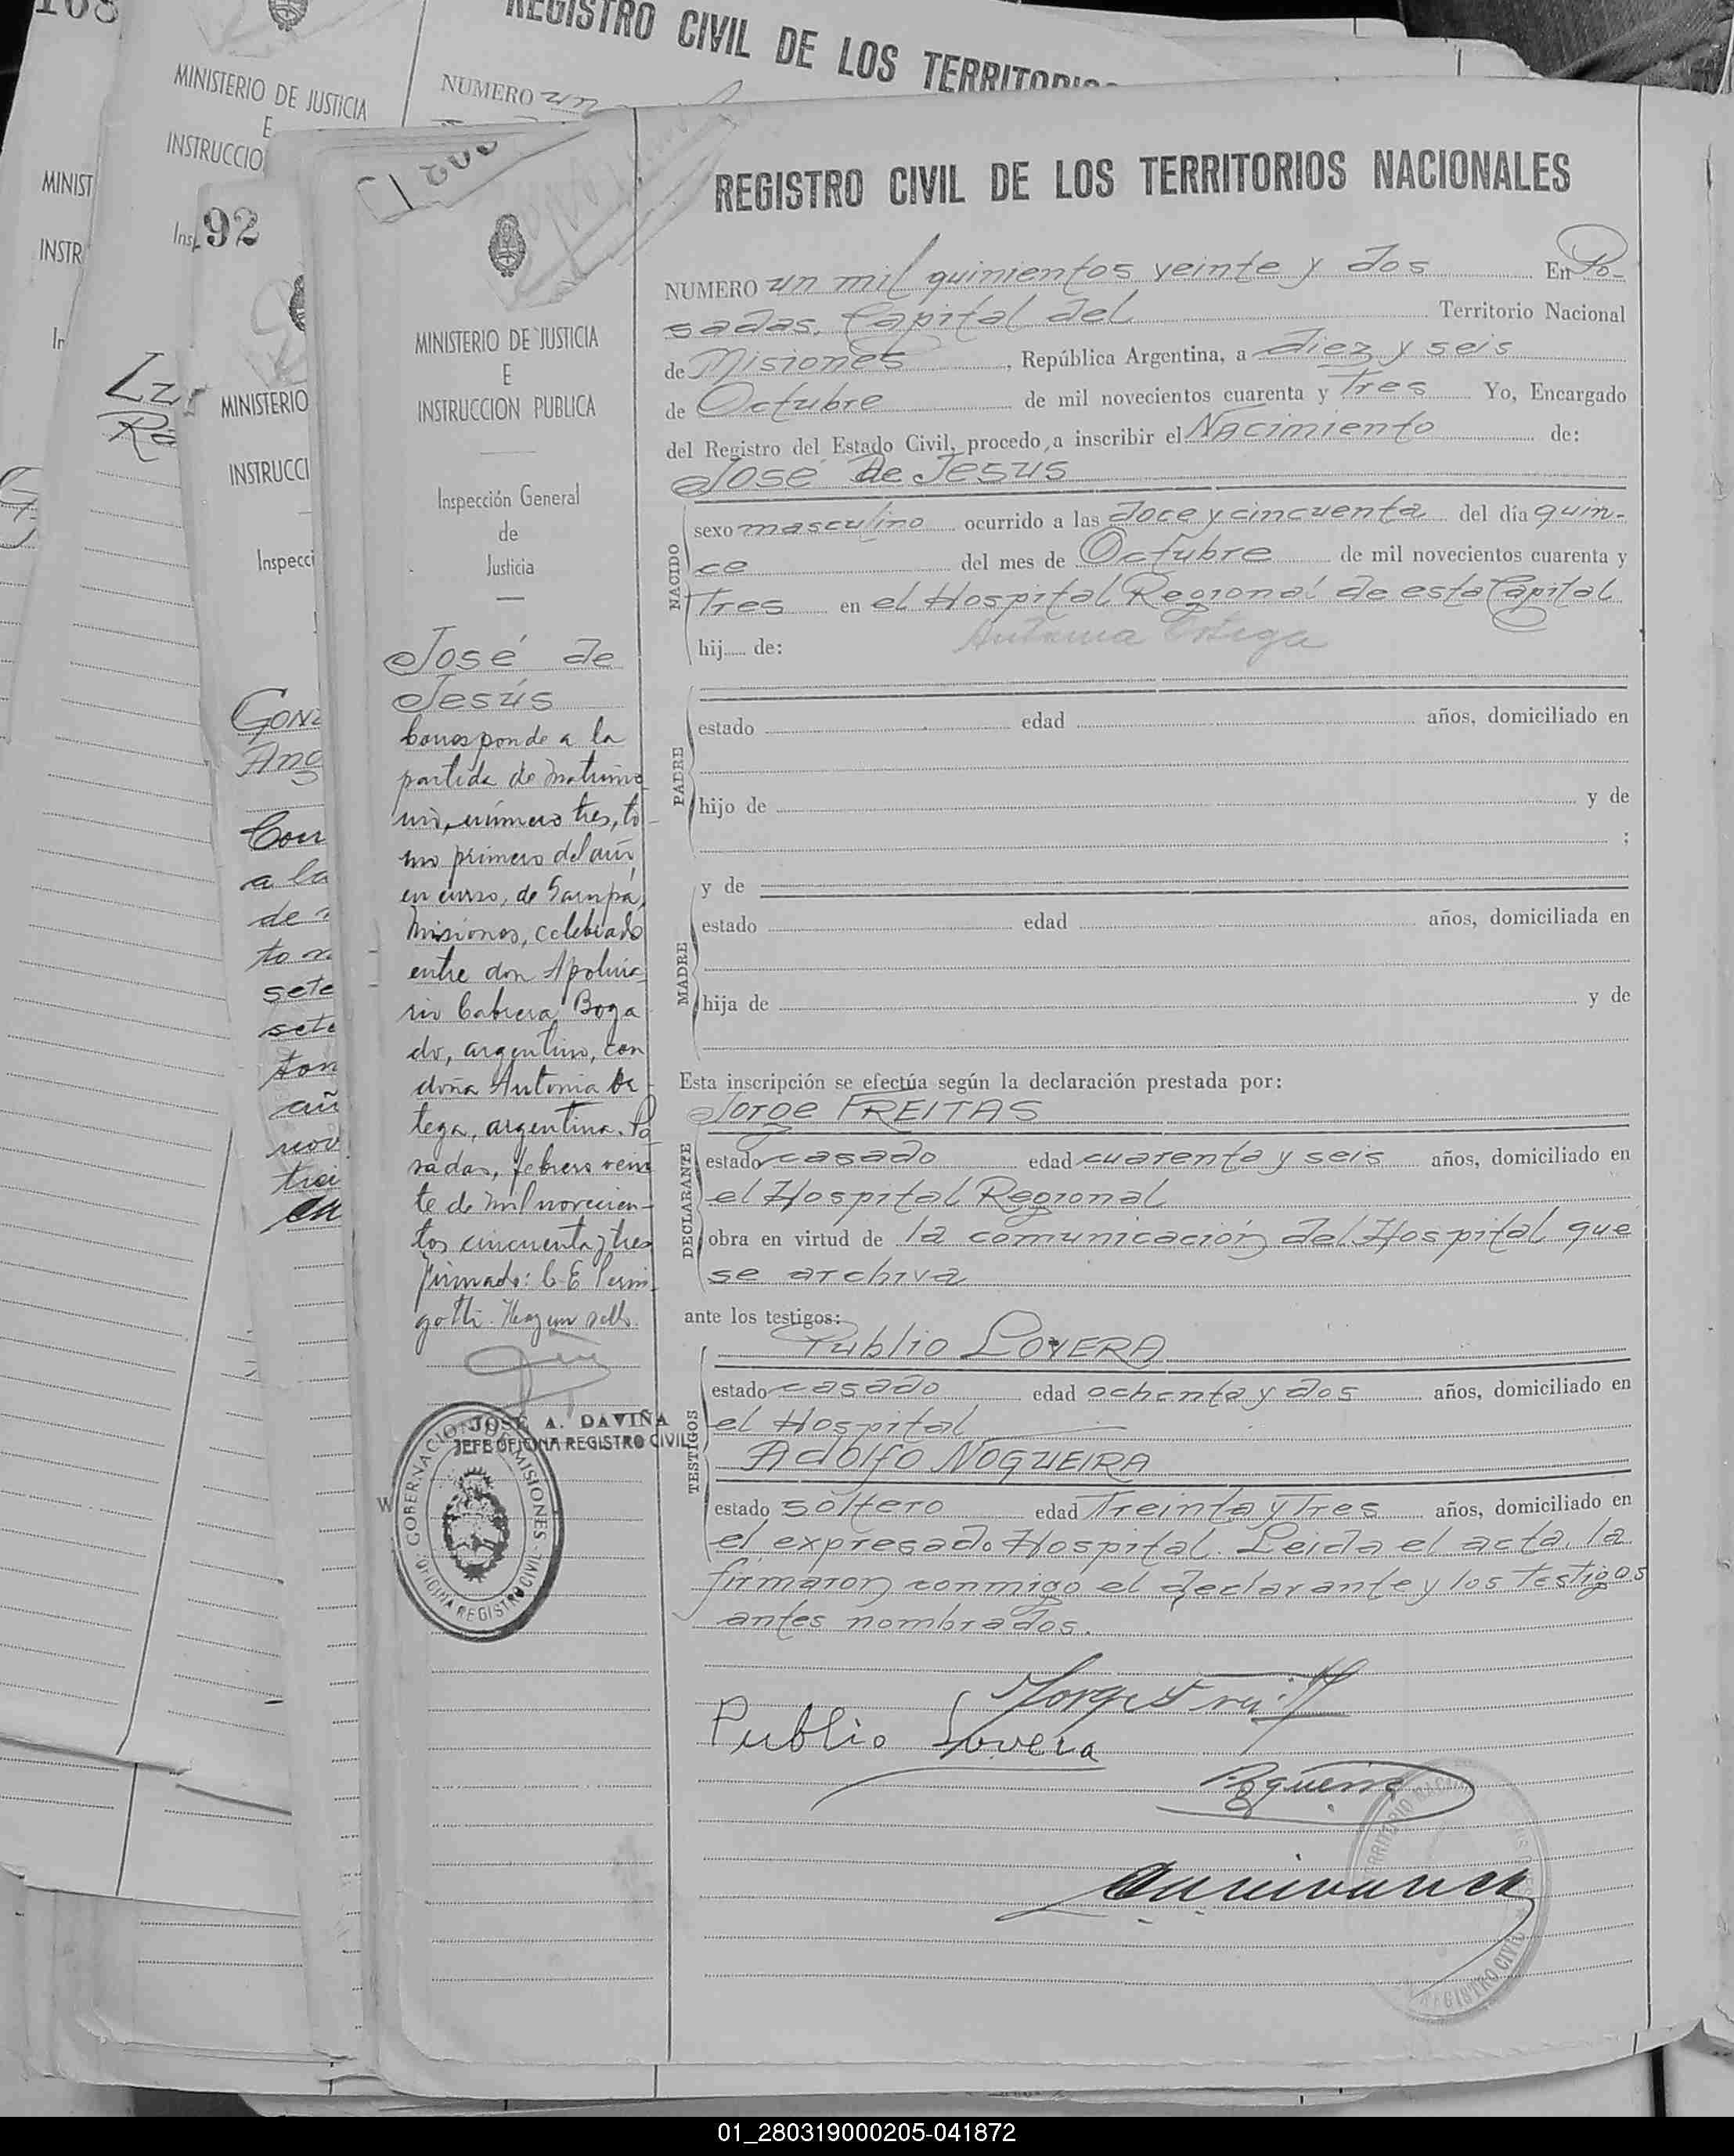 168
REGISTRO CIVIL DE LOS TERRITORIOS
MINISTERIO DE JUSTICIA
E
NUMERO un
INSTRUCCIO
MINIST
INSTR
Insp
92
In
MINISTERIO
INSTRUCCI
Inspecci
Gonz
Ang
a la
de
sete
sete
tom
añ
nov
en
REGISTRO CIVIL DE LOS TERRITORIOS NACIONALES
MINISTERIO DE JUSTICIA
E
INSTRUCCION PUBLICA
Inspección General
de
Justicia
José de
Jesús
Corresponde a la
partida de matrimo
nio, número tres, to-
mo primero del año
en curso, de Garupá,
Misiones, celebrado
entre don Apolina-
rio Cabrera Boga
do, argentino, con
doña Antonia Or-
tega, argentina. Po-
sadas, febrero vein
te de mil novecien-
tos cincuenta y tres
firmado: C. E. Perni-
gotti. Hay un sello.
JOSÉ A. DAVIÑA
JEFE OFICINA REGISTRO CIVIL
GOBERNACION DE MISIONES
OFICINA REGISTRO CIVIL
NUMERO un mil quinientos veinte y dos En Po-
sadas, Capital del Territorio Nacional
de Misiones, República Argentina, a diez y seis
de Octubre de mil novecientos cuarenta y Tres Yo, Encargado
del Registro del Estado Civil, procedo a inscribir el Nacimiento de:
José De Jesus
NACIDO
sexo masculino ocurrido a las doce y cincuenta del día quin-
ce del mes de Octubre de mil novecientos cuarenta y
Tres en el Hospital Regional de esta Capital
hij..... de: Antonia Ortega
PADRE
estado edad años, domiciliado en
hijo de y de
;
y de
MADRE
estado edad años, domiciliada en
hija de y de
Esta inscripción se efectúa según la declaración prestada por:
Jorge FREITAS
DECLARANTE
estado casado edad cuarenta y seis años, domiciliado en
el Hospital Regional
obra en virtud de la comunicación del Hospital que
se archiva
ante los testigos:
Publio LOVERA
TESTIGOS
estado casado edad ochenta y dos años, domiciliado en
el Hospital
Adolfo NOGUEIRA
estado soltero edad Treinta y Tres años, domiciliado en
el expresado Hospital. Leida el acta, la
firmaron conmigo el declarante y los testigos
antes nombrados.
Publio Lovera
REGISTRO CIVIL
01_280319000205-041872